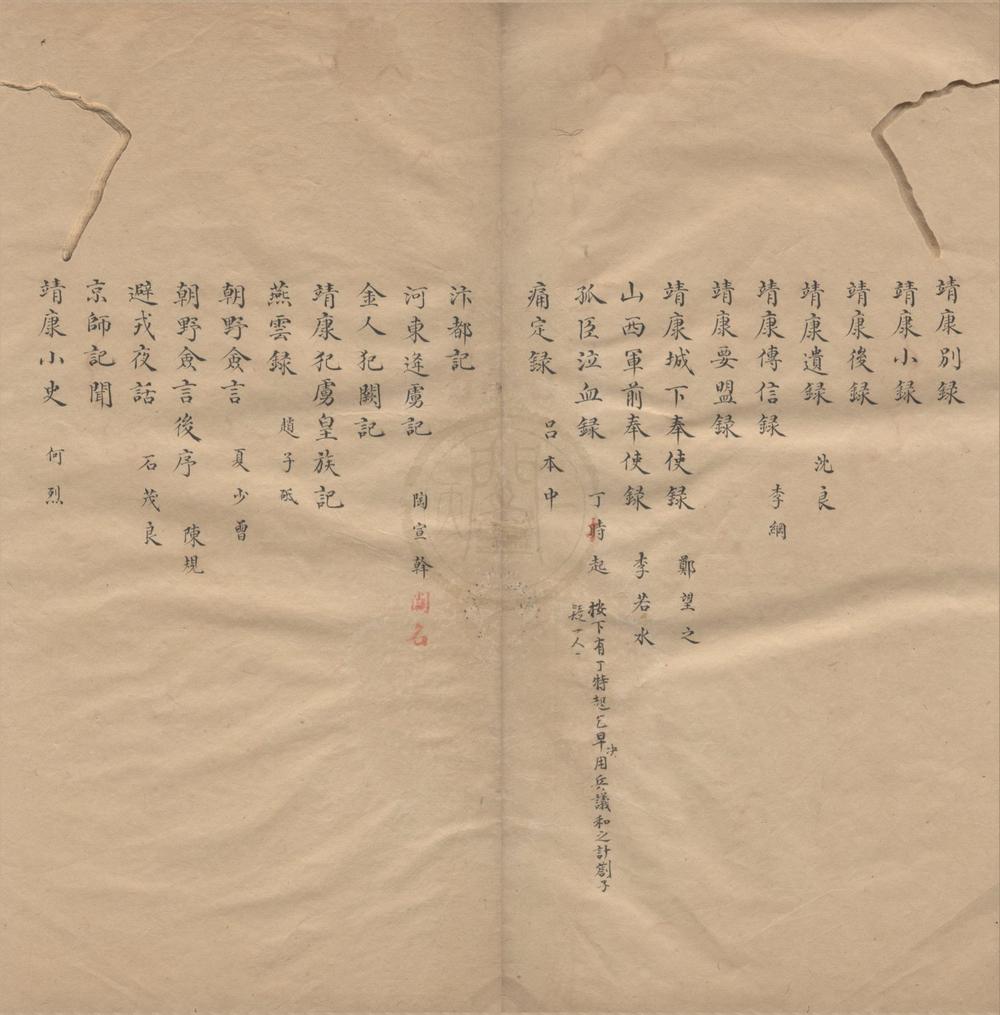 靖康別録
靖康小録
靖康後録
靖康遺録 沈良
靖康傳信録 李綱
靖康要盟録
靖康城下奉使録 鄭望之
山西軍前奉使録 李若水
孤臣泣血録 丁特起 按下有丁特起乞早决用兵議和之計劄子
疑一人
痛定録 呂本中
汴都記
河東逢虜記 陶宣幹 闕名
金人犯闕記
靖康犯虜皇族記
燕雲録 趙子砥
朝野僉言 夏少曾
朝野僉言後序 陳規
避戎夜話 石茂良
京師記聞
靖康小史 何烈